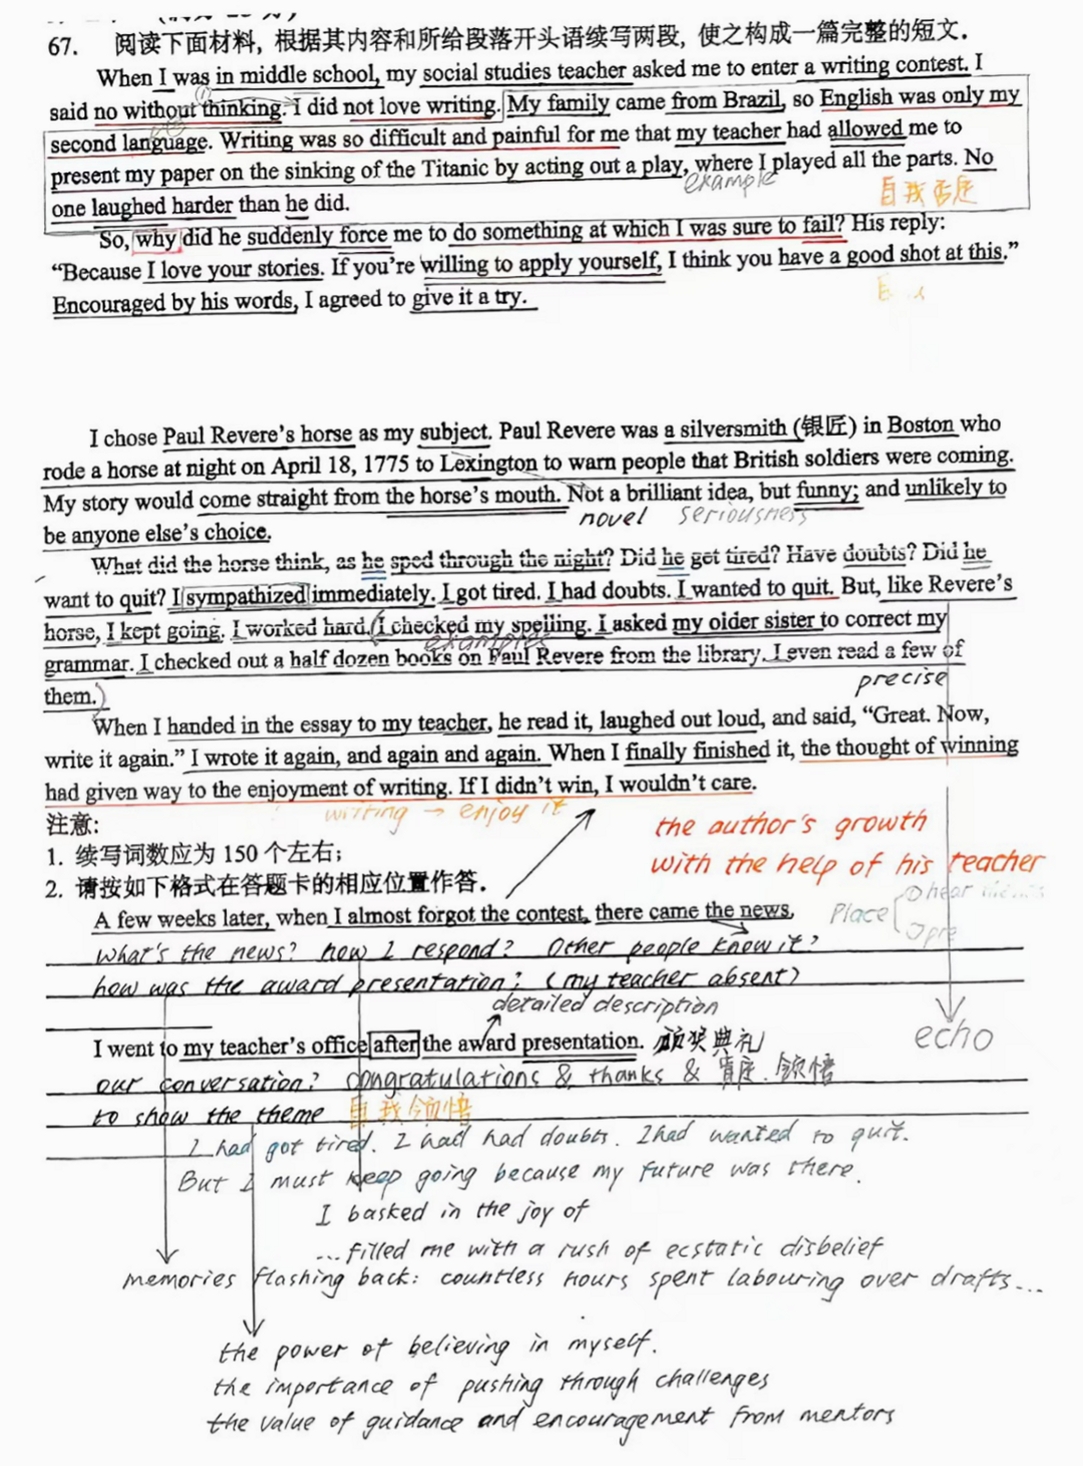 67. 阅读下面材料,根据其内容和所给段落开头语续写两段,使之构成一篇完整的短文.
When I was in middle school, my social studies teacher asked me to enter a writing contest. I
said no without thinking. I did not love writing. My family came from Brazil, so English was only my
second language. Writing was so difficult and painful for me that my teacher had allowed me to
present my paper on the sinking of the Titanic by acting out a play, where I played all the parts. No
example
自我否定
one laughed harder than he did.
So, why did he suddenly force me to do something at which I was sure to fail? His reply:
“Because I love your stories. If you’re willing to apply yourself, I think you have a good shot at this.”
Encouraged by his words, I agreed to give it a try.
I chose Paul Revere’s horse as my subject. Paul Revere was a silversmith (银匠) in Boston who
rode a horse at night on April 18, 1775 to Lexington to warn people that British soldiers were coming.
My story would come straight from the horse’s mouth. Not a brilliant idea, but funny; and unlikely to
novel seriousness
be anyone else’s choice.
What did the horse think, as he sped through the night? Did he get tired? Have doubts? Did he
want to quit? I sympathized immediately. I got tired. I had doubts. I wanted to quit. But, like Revere’s
horse, I kept going. I worked hard. I checked my spelling. I asked my older sister to correct my
examples
grammar. I checked out a half dozen books on Paul Revere from the library. I even read a few of
precise
them.
When I handed in the essay to my teacher, he read it, laughed out loud, and said, “Great. Now,
write it again.” I wrote it again, and again and again. When I finally finished it, the thought of winning
had given way to the enjoyment of writing. If I didn’t win, I wouldn’t care.
writing → enjoy it
注意:
the author's growth
1. 续写词数应为 150 个左右;
with the help of his teacher
2. 请按如下格式在答题卡的相应位置作答.
A few weeks later, when I almost forgot the contest, there came the news.
Place ① hear
what's the news? how I respond? Other people know it?
how was the award presentation? (my teacher absent)
detailed description
I went to my teacher’s office after the award presentation. 颁奖典礼
echo
our conversation? congratulations & thanks & 肯定.领悟
to show the theme 自我领悟
I had got tired. I had had doubts. I had wanted to quit.
But I must keep going because my future was there.
I basked in the joy of
...filled me with a rush of ecstatic disbelief
memories flashing back: countless hours spent labouring over drafts...
the power of believing in myself.
the importance of pushing through challenges
the value of guidance and encouragement from mentors